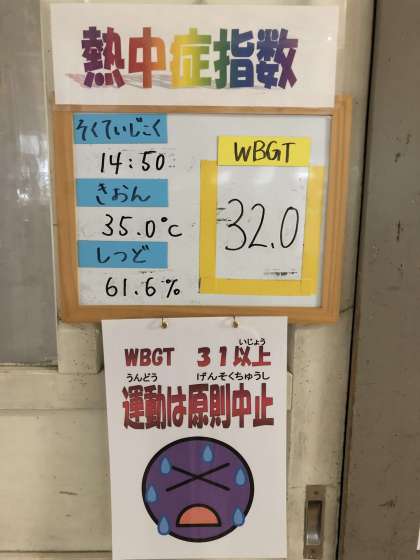 熱中症指数
そくていじこく
14:50
きおん
35.0℃
しつど
61.6%
WBGT
32.0
いじょう
WBGT 31以上
うんどう げんそくちゅうし
運動は原則中止